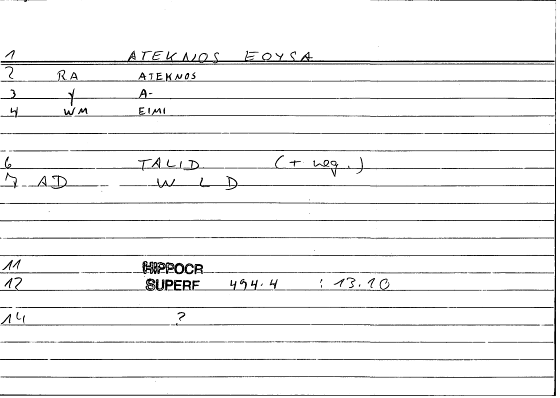 1 ATEKNOS EOYSA
2 RA ATEKNOS
3 Y A-
4 WM EIMI
6 TALID (+ neg.)
7 AD W L D
11 HIPPOCR
12 SUPERF 494.4 : 13.20
14 ?